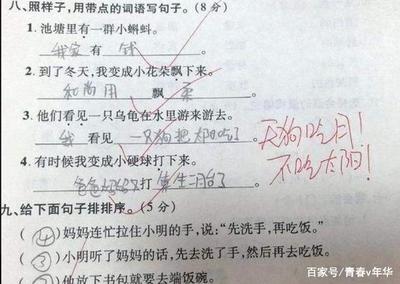 八、照样子,用带点的词语写句子。(8分)
1. 池塘里有一群小蝌蚪。
我家 有 钱 。
2. 到了冬天,我变成小花朵飘下来。
和尚用 飘柔 。
3. 他们看见一只乌龟在水里游来游去。
我 看见 一只狗把太阳吃了 。
天狗吃月!
不吃太阳!
4. 有时候我变成小硬球打下来。
爸爸 打 。
九、给下面句子排排序。(5分)
(4)妈妈连忙拉住小明的手,说:“先洗手,再吃饭。”
(3)小明听了妈妈的话,先去洗了手,然后再去吃饭。
(2)他放下书包就要去端饭碗。
百家号/青春v年华